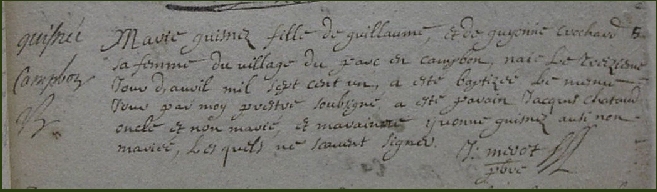 guisnée
Campbon
Marie guisnez fille de guillaume, et de guyonne crochard
sa femme du village du parc en campbon, naie le treizieme
Jour d'avril mil sept cent un, a este baptizee le mesme
Jour par moy prestre soubsigné, a esté parain Jacques
oncle et non marié, et maraine yvonne guisnez aussi non
mariee, Lesquels ne scavent signer.
pbre